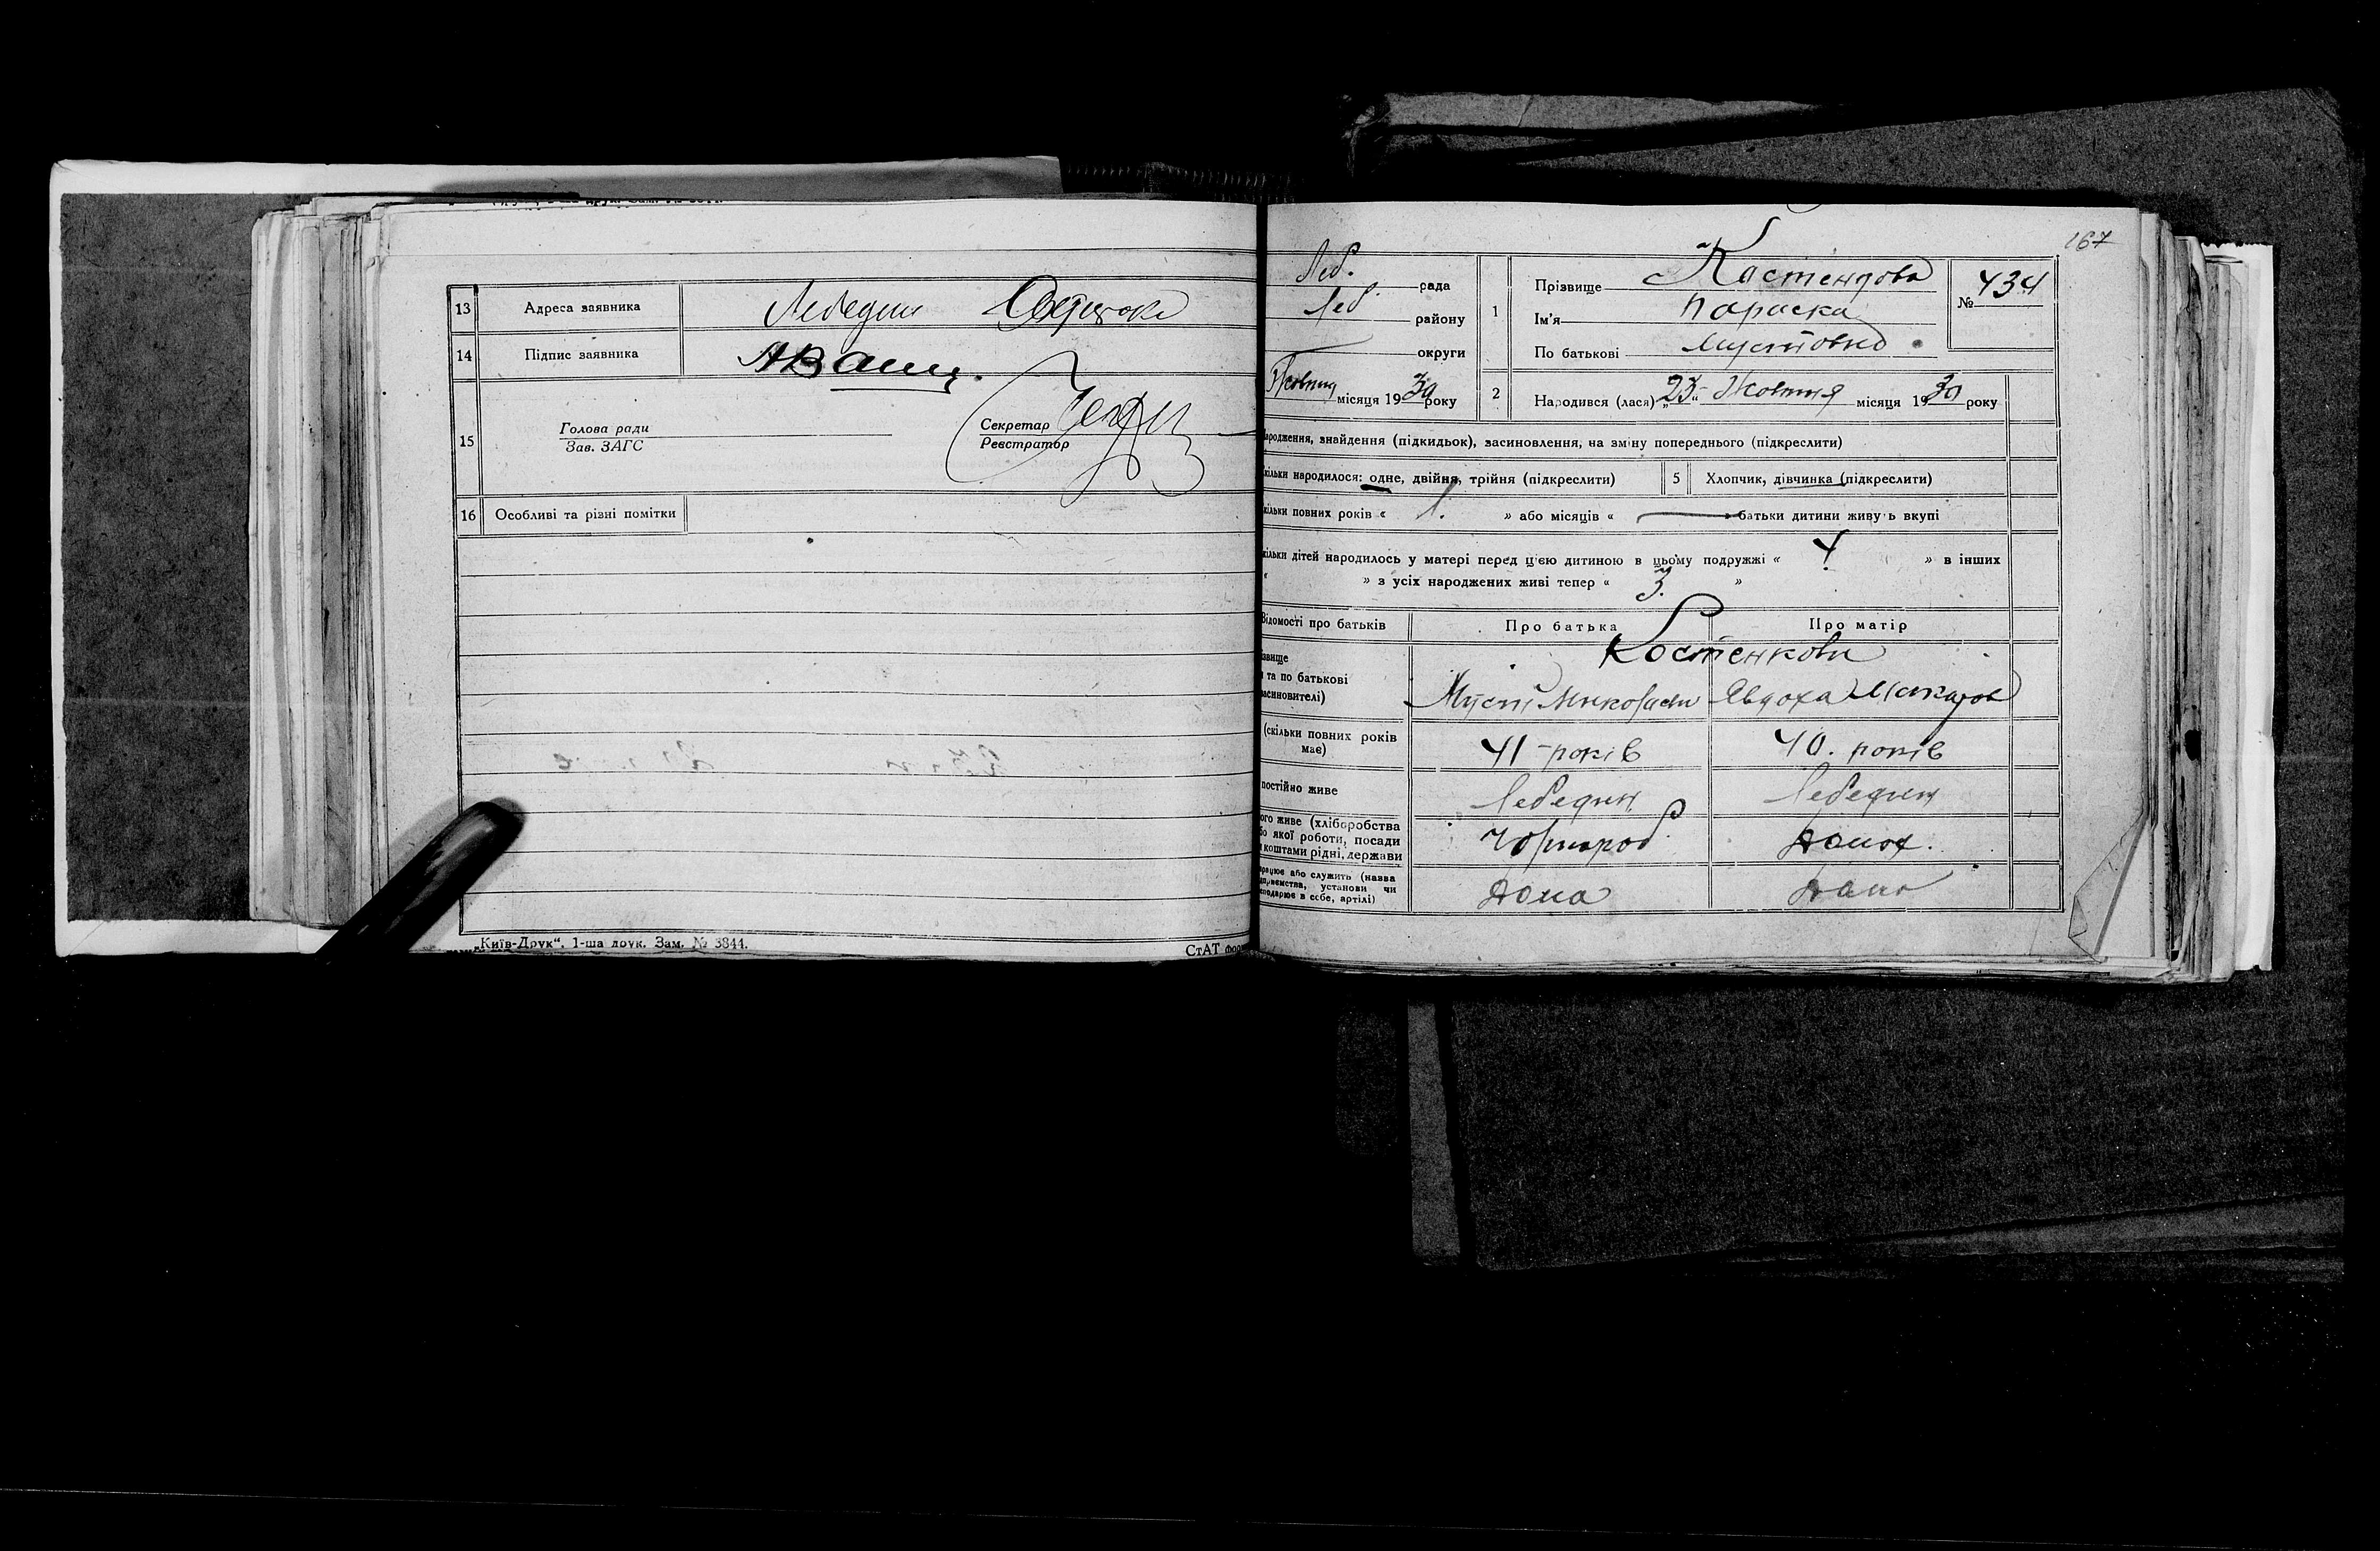 13 Адреса заявника Лебедин
14 Підпис заявника
15 Голова ради
Зав. ЗАГС
Секретар
Реєстратор
16 Особливі та різні помітки
„Київ-Друк“. 1-ша друк. Зам. № 3844.
СтАТ
167
Леб. рада
Леб. району
округи
Жовтня місяця 1930 року
1 Прізвище
Ім'я Параска
По батькові
№ 434
2 Народився (лася) „23“ Жовтня місяця 1930 року
ародження, знайдення (підкидьок), засиновлення, на зміну попереднього (підкреслити)
кільки народилося: одне, двійня, трійня (підкреслити) 5 Хлопчик, дівчинка (підкреслити)
кільки повних років « 1. » або місяців « — батьки дитини живуть вкупі
кільки дітей народилось у матері перед цією дитиною в цьому подружжі « 4 » в інших
« » з усіх народжених живі тепер « 3. »
Відомості про батьків Про батька Про матір
звище
та по батькові
засиновителі)
Костенкови
Мусій Явдоха
(скільки повних років має) 41 років 40. років
постійно живе Лебедин Лебедин
ого живе (хліборобства
бо якої роботи, посади
коштами рідні, держави
Чорнороб. Домох.
рацює або служить (назва
дприємства, установи чи
сподарює в себе, артілі)
Дома Дома